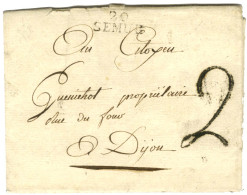 20
SEMUR
Au Citoyen
Guenichot propriétaire
rue du four
2
A Dijon